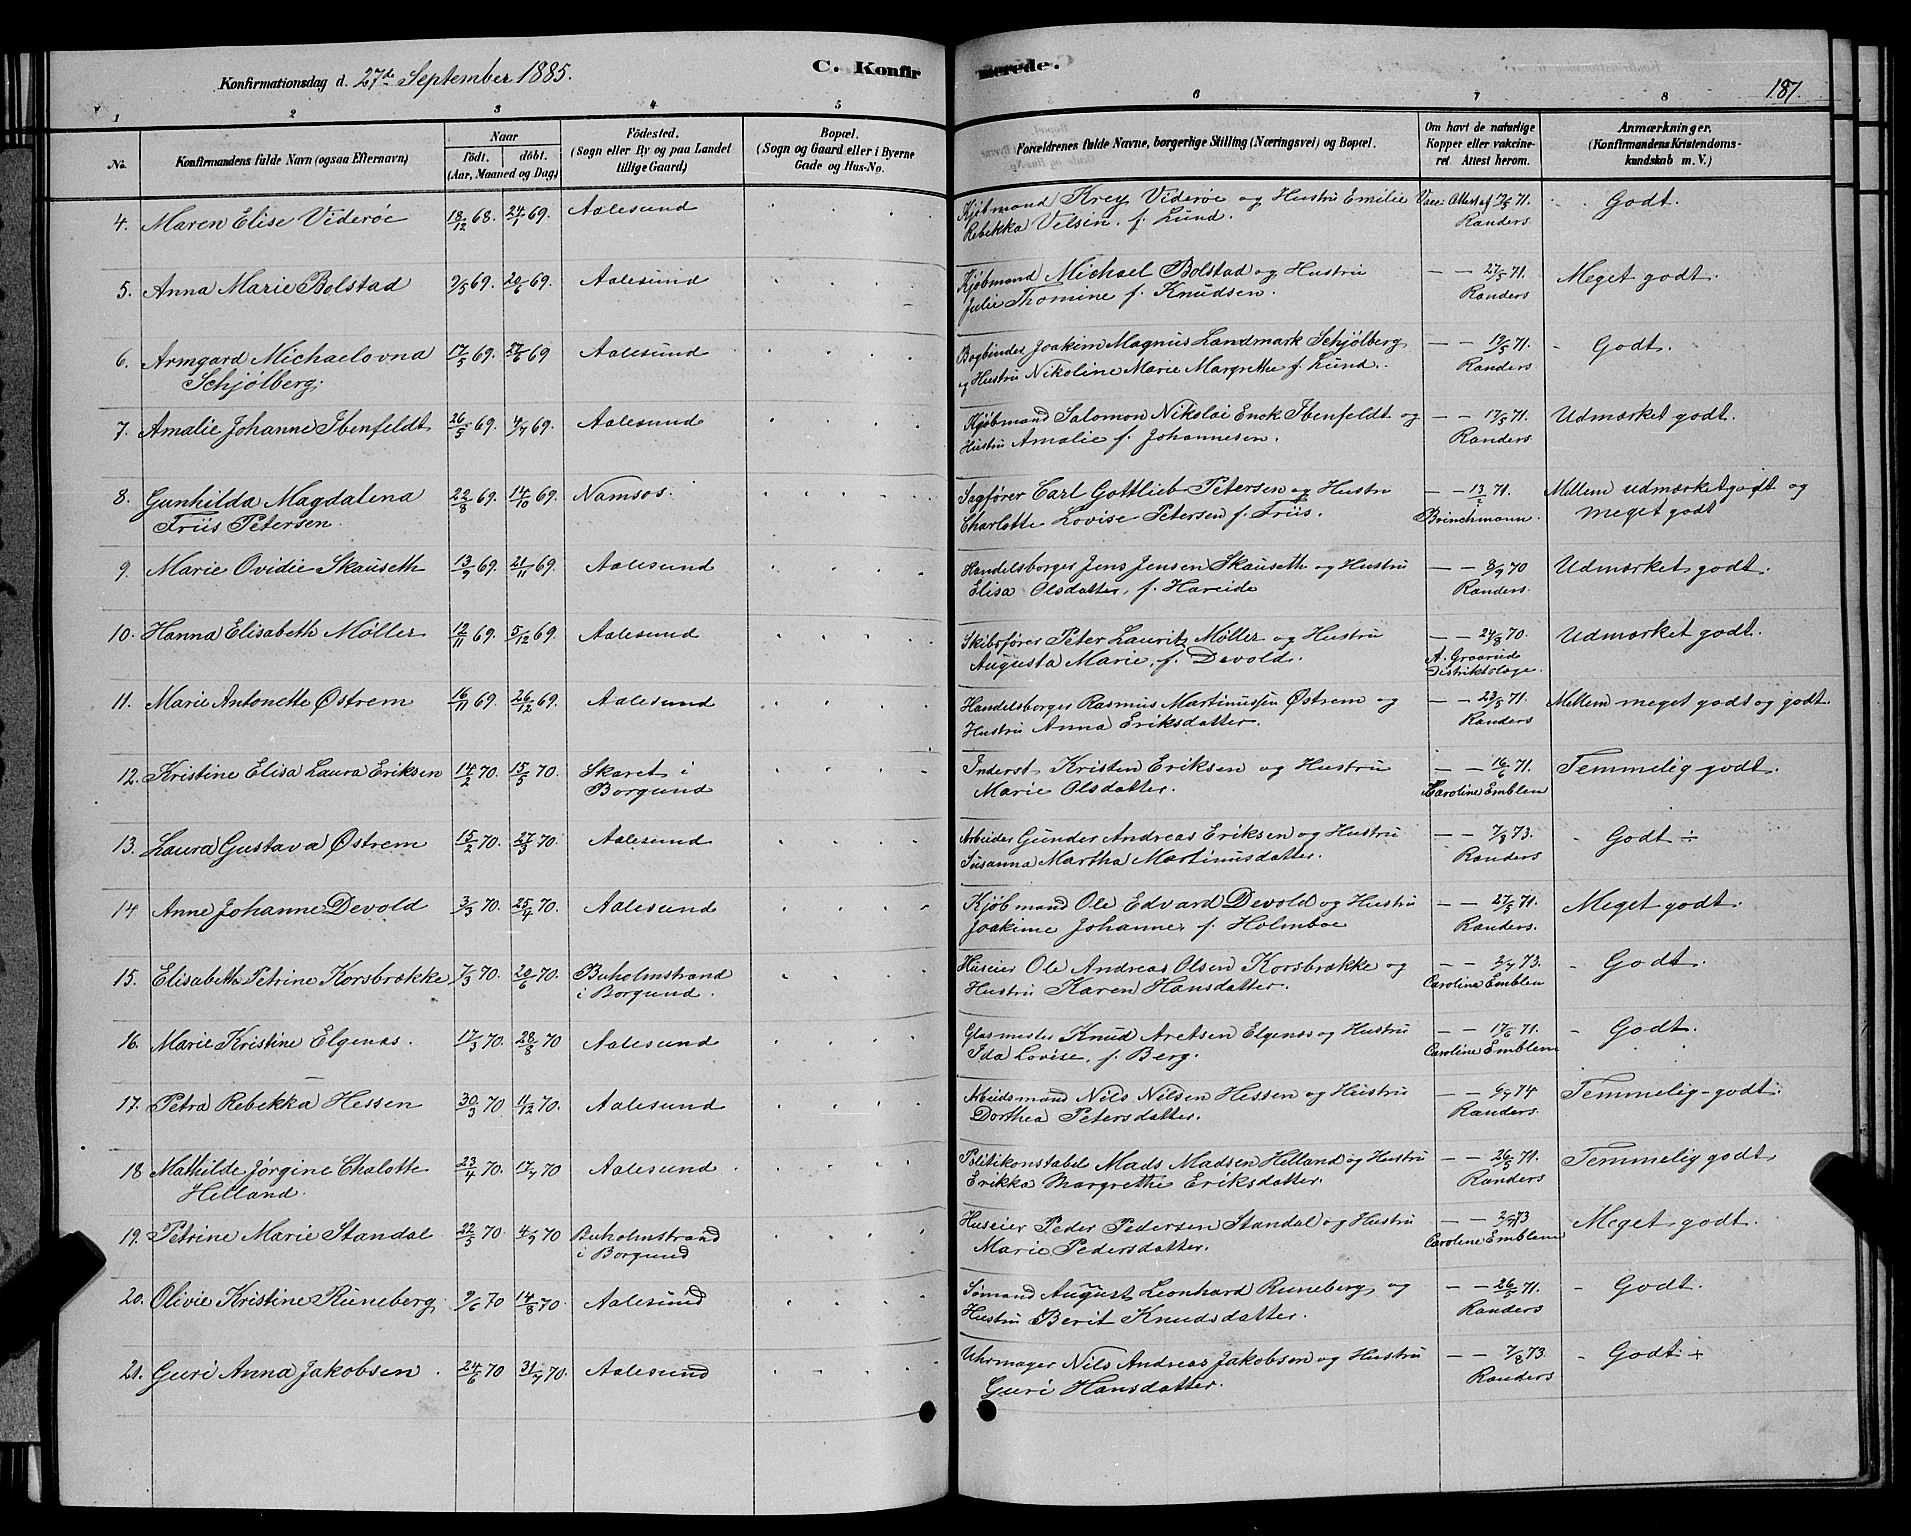 Konfirmationsdag d. 27de September 1885.
C. Konfirmerede.
187.
1 2 3 4 5 6 7 8
No.
Konfirmandens fulde Navn (ogsaa Efternavn)
Naar
født. døbt.
(Aar, Maaned og Dag)
Födested.
(Sogn eller By og paa Landet
tillige Gaard)
Bopæl.
(Sogn og Gaard eller i Byerne
Gade og Hus-No.
Forældrenes fulde Navne, borgerlige Stilling (Næringsvei) og Bopæl.
Om havt de naturlige
Kopper eller vakcine-
ret. Attest herom.
Anmærkninger.
(Konfirmandens Kristendoms-
kundskab m. V.)
4. Maren Elise Viderøe 18/12 68. 24/1 69. Aalesund Kjøbmand Krey Viderøe og Hustru Emilie Vacc. Attest af 19/5 71. Godt.
Rebekka Velsin. f. Lund. Randers
5. Anna Marie Bolstad 9/5 69. 20/6 69. Aalesund Kjøbmand Michael Bolstad og Hustru — — 27/5 71. Meget godt.
Julie Thomine f. Knudsen. Randers
6. Armgard Michaelovna 17/5 69. 27/6 69 Aalesund Bogbinder Joakim Magnus Landmark Schjølberg — 19/5 71. Godt.
Schjølberg. og Hustru Nikoline Marie Margrethe f. Lund. Randers
7. Amalie Johanne Ibenfeldt 26/5 69. 4/7 69. Aalesund Kjøbmand Salomon Nikolai Enck Ibenfeldt og — — 17/5 71. Udmærket godt.
Hustru Amalie f. Johannesen. Randers
8. Gunhilda Magdalena 22/8 69. 14/10 69. Namsos. Sagfører Carl Gottlieb Petersen og Hustru — — 13/2 71. Mellem udmærket godt og
Friis Petersen. Charlotte Lovise Petersen f. Friis. Brinchmann. meget godt
9. Marie Ovidie Skauseth 13/9 69. 21/11 69. Aalesund Handelsborger Jens Jensen Skauseth og Hustru — — 8/9 70 Udmærket godt.
Elisa Olsdatter, f. Hareide Randers.
10. Hanna Elisabeth Møller 12/11 69. 5/12 69. Aalesund Skibsfører Peter Laurits Møller og Hustru — — 24/8 70. Udmærket godt.
Augusta Marie, f. Devold. A. Graarud
Distriktslæge.
11. Marie Antonette Østrem 16/11 69. 26/12 69. Aalesund Handelsborger Rasmus Martinussen Østrem og — — 23/5 71. Mellem meget godt og godt.
Hustru Anna Eriksdatter. Randers
12. Kristine Elisa Laura Eriksen 14/2 70. 15/5 70. Skaret i Inderst Kristen Eriksen og Hustru — — 16/6 71. Temmelig godt.
Borgund Marie Olsdatter. Caroline Emblem
13. Laura Gustava Østrem 15/2 70. 27/3 70. Aalesund Arbeider Gunder Andreas Eriksen og Hustru — — 7/8 73. Godt ÷
Susanna Martha Martinusdatter. Randers
14 Anne Johanne Devold 3/3 70. 25/4 70. Aalesund Kjøbmand Ole Edvard Devold og Hustru — — 27/5 71. Meget godt.
Joakime Johanne, f. Holmboe Randers.
15. Elisabeth Petrine Korsbrække 7/3 70. 20/6 70. Buholmstrand Huseier Ole Andreas Olsen Korsbrække og — — 2/7 73. Godt.
i Borgund. Hustru Karen Hansdatter. Caroline Emblem
16. Marie Kristine Elgenæs. 17/3 70. 28/8 70 Aalesund Glasmester Knud Aretsen Elgenæs og Hustru — — 17/6 71. Godt.
Ida Lovise, f. Berg. Caroline Emblem
17. Petra Rebekka Hessen 30/3 70 11/12 70. Aalesund Arbeidsmand Nils Nilsen Hessen og Hustru — — 6/7 74 Temmelig-godt.
Dorthea Petersdatter. Randers.
18 Mathilde Jørgine Chalotte 23/4 70. 17/7 70 Aalesund Politikonstabel Mads Madsen Helland og Hustru — — 26/5 71. Temmelig godt
Helland. Erikka Margrethe Eriksdatter. Randers
19. Petrine Marie Standal. 22/5 70. 4/9 70 Buholmstrand Huseier Peder Pedersen Standal og Hustru — — 2/7 73 Meget godt.
i Borgund Marie Pedersdatter. Caroline Emblem
20. Olivie Kristine Runeberg. 9/6 70 14/8 70. Aalesund Sømand August Leonhard Runeberg og — — 26/5 71. Godt.
Hustru Berit Knudsdatter. Randers
21. Guri Anna Jakobsen. 24/6 70 31/7 70. Aalesund Uhrmager Nils Andreas Jakobsen og Hustru — — 7/8 73. Godt ÷
Guri Hansdatter. Randers